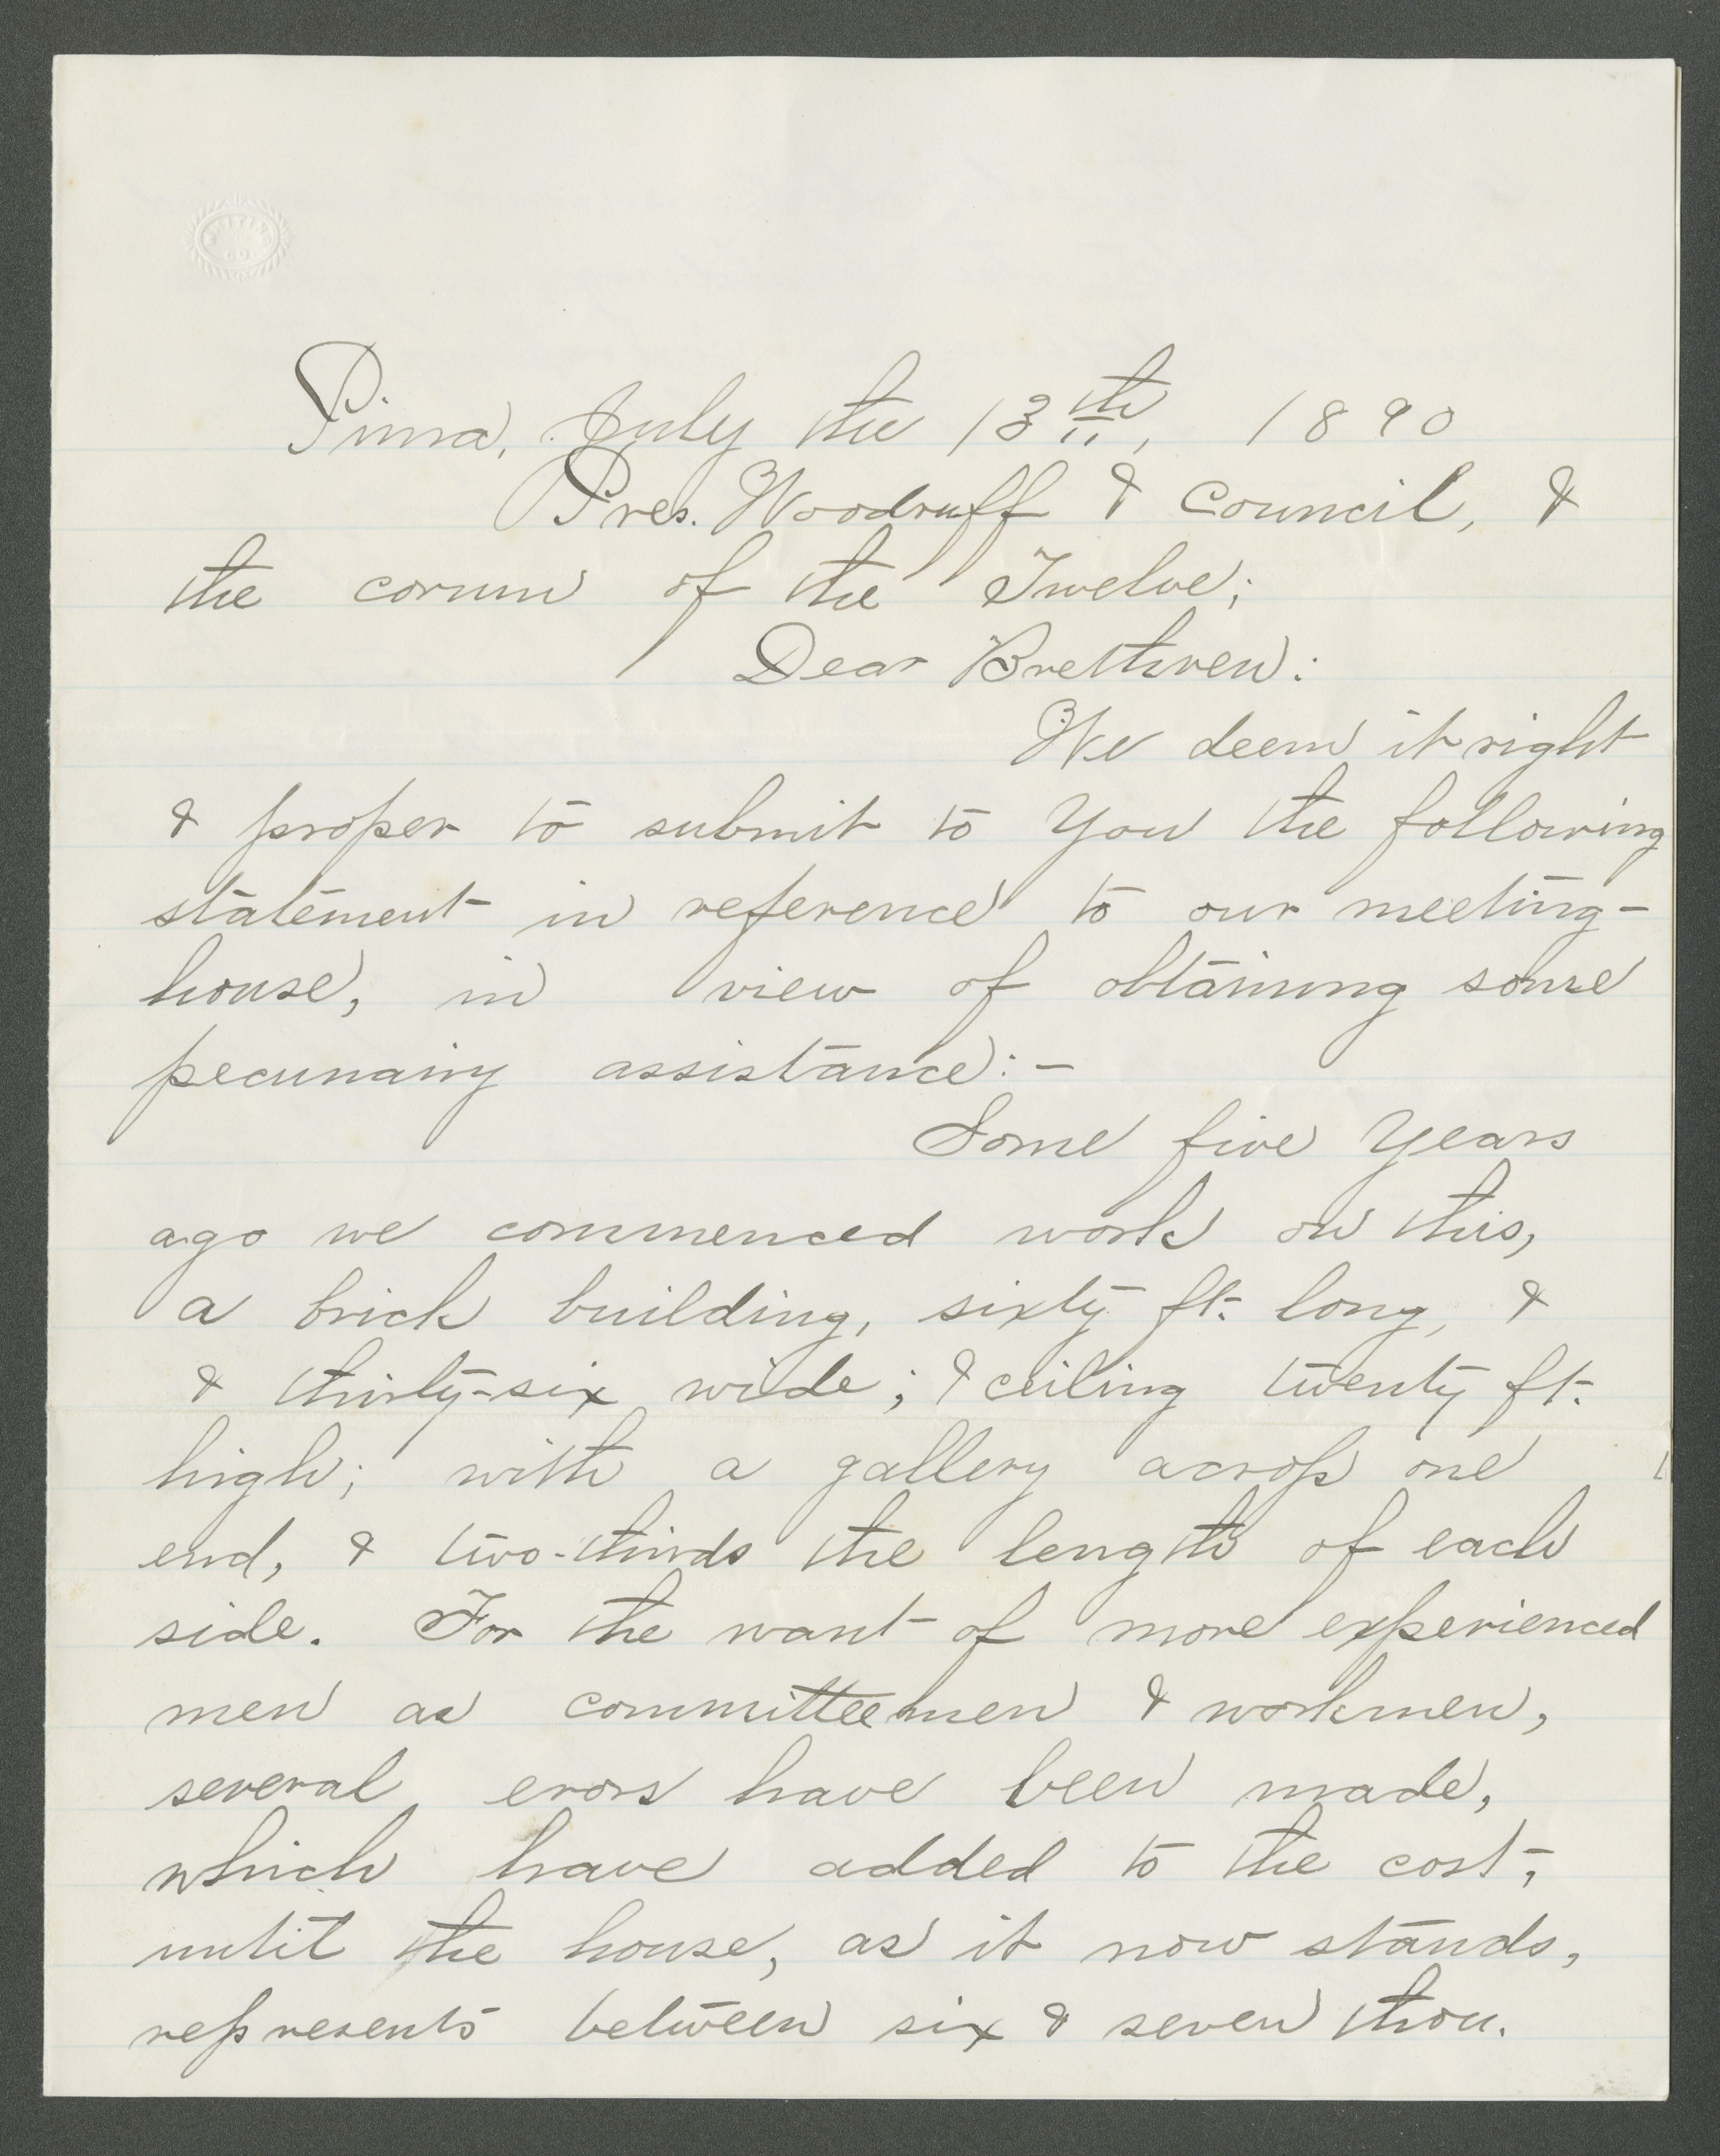 Pima, July the 13th, 1890
Pres. Woodruff & Council, &
the corum of the Twelve;
Dear Brethren:
We deem it right
& proper to submit to You the following
statement in reference to our meeting-
house, in view of obtaining some
pecunairy assistance:-
Some five Years
ago we commenced work on this,
a brick building, sixty ft. long, &
& thirty-six wide; & ceiling twenty ft.
high; with a gallery across one
end, & two-thirds the length of each
side. For the want of more experienced
men as committeemen & workmen,
several erors have been made,
which have added to the cost,
until the house, as it now stands,
represents between six & seven thou.